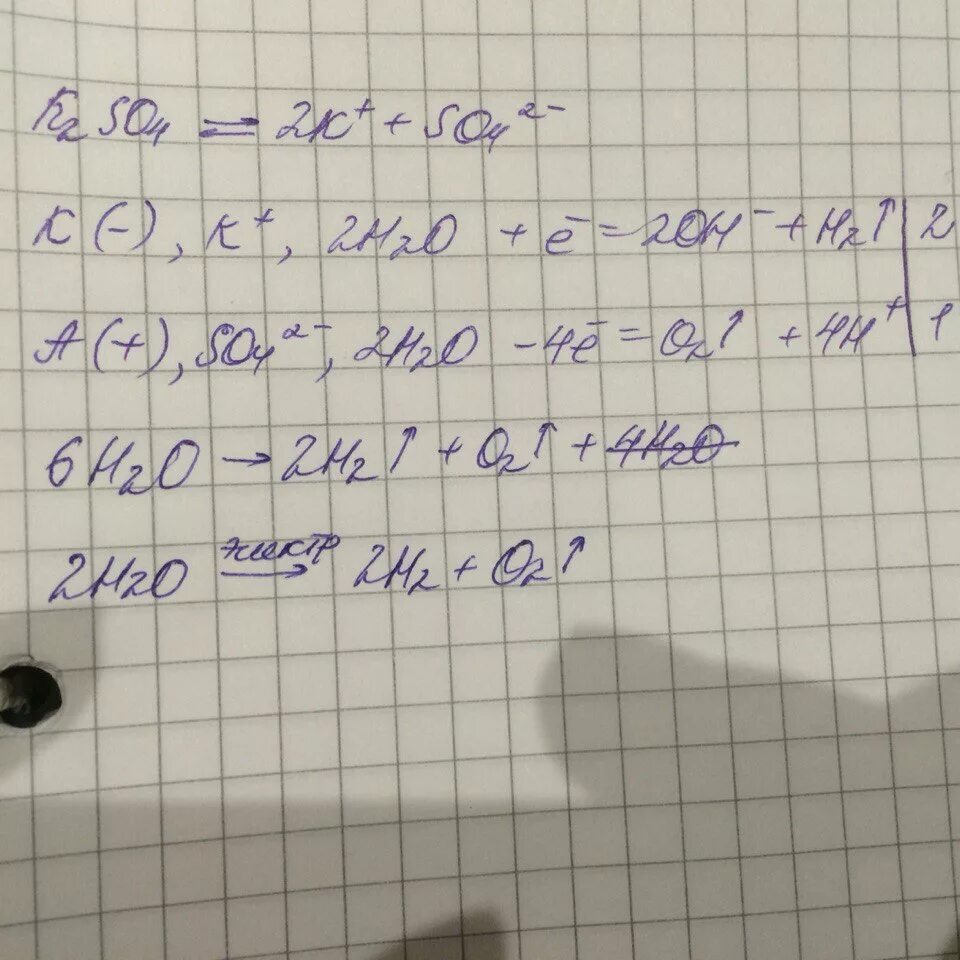 K₂SO₄ ⇌ 2K⁺ + SO₄²⁻
K(-), K⁺, 2H₂O + ē = 2OH⁻ + H₂↑ | 2
A(+), SO₄²⁻, 2H₂O - 4ē = O₂↑ + 4H⁺ | 1
6H₂O → 2H₂↑ + O₂↑ + ~~4H₂O~~
2H₂O электр→ 2H₂ + O₂↑